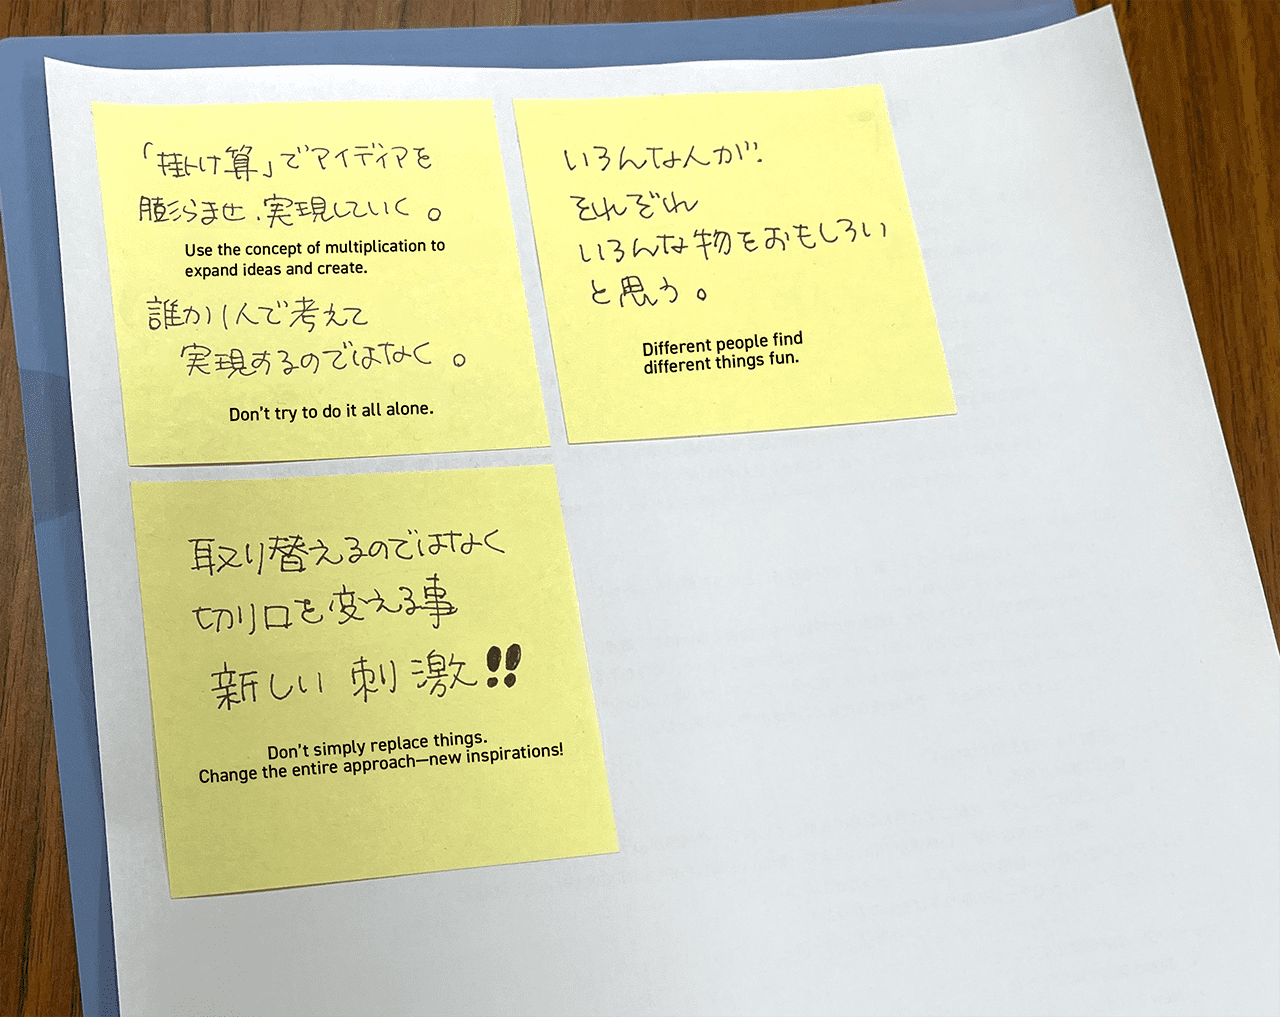 「掛け算」でアイディアを
膨らませ、実現していく。
Use the concept of multiplication to
expand ideas and create.
誰か1人で考えて
実現するのではなく。
Don't try to do it all alone.
いろんな人が、
それぞれ
いろんな物をおもしろい
と思う。
Different people find
different things fun.
取り替えるのではなく
切り口を変える事
新しい刺激!!
Don't simply replace things.
Change the entire approach—new inspirations!